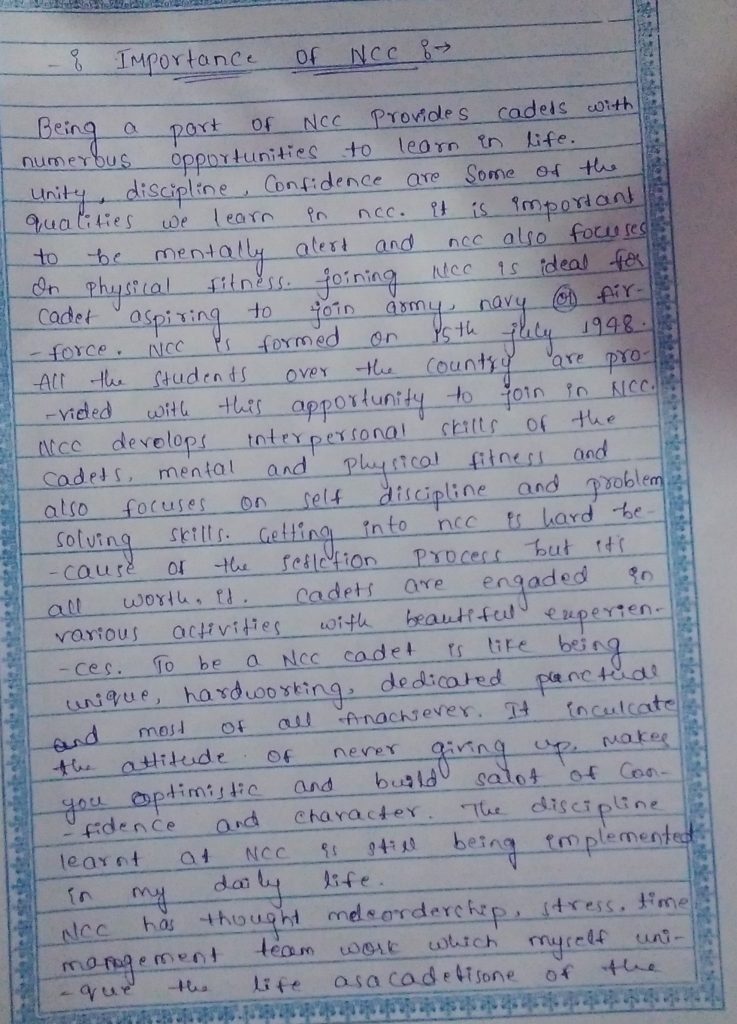 -: Importance of NCC :→
Being a part of NCC provides cadets with
numerous opportunities to learn in life.
unity, discipline, Confidence are some of the
qualities we learn in ncc. it is important
to be mentally alert and ncc also focuses
on physical fitness. joining NCC is ideal for
cadet aspiring to join army, navy or Air-
-force. NCC is formed on 15th july 1948.
All the students over the country are pro-
-vided with this apportunity to join in NCC.
NCC develops interpersonal skills of the
cadets, mental and physical fitness and
also focuses on self discipline and problem
solving skills. Getting into ncc is hard be-
-cause of the seslction process but it's
all worth it. cadets are engaded in
various activities with beautiful experien-
-ces. To be a NCC cadet is like being
unique, hardwoorking, dedicated punctual
and most of all Anachsever. It inculcate
the attitude of never giving up. makes
you optimistic and build salot of Con-
-fidence and character. The discipline
learnt at NCC is still being implemented
in my daily life.
NCC has thought meleordership, stress, time
management team work which myself uni-
-que the life asacadetisone of the